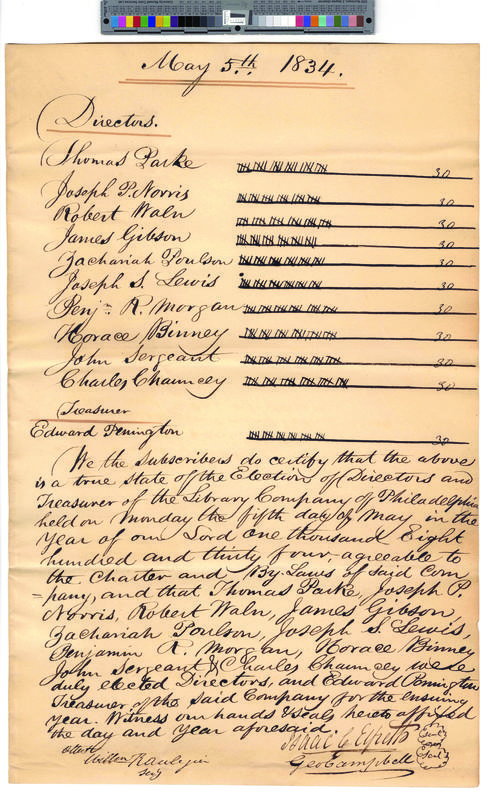 May 5th 1834.
Directors.
Thomas Parke 30
Joseph P. Norris 30
Robert Waln 30
James Gibson 30
Zachariah Poulson 30
Joseph S. Lewis 30
Benjn R. Morgan 30
Horace Binney 30
John Sergeant 30
Charles Chauncey 30
Treasurer
Edward Penington 30
We the Subscribers do certify that the above
is a true State of the Election of Directors and
Treasurer of the Library Company of Philadelphia
held on Monday the fifth day of May in the
Year of our Lord one thousand Eight
hundred and thirty four, agreeable to
the Charter and By-Laws of said Com
=pany, and that Thomas Parke, Joseph P.
Norris, Robert Waln, James Gibson,
Zachariah Poulson, Joseph S. Lewis,
Benjamin R. Morgan, Horace Binney
John Sergeant & Charles Chauncey were
duly elected Directors, and Edward Penington
Treasurer of the said Company for the ensuing
Year. Witness our hands & seals hereto affixed
the day and Year aforesaid
Isaac C
Geo Campbell
Seal
Seal